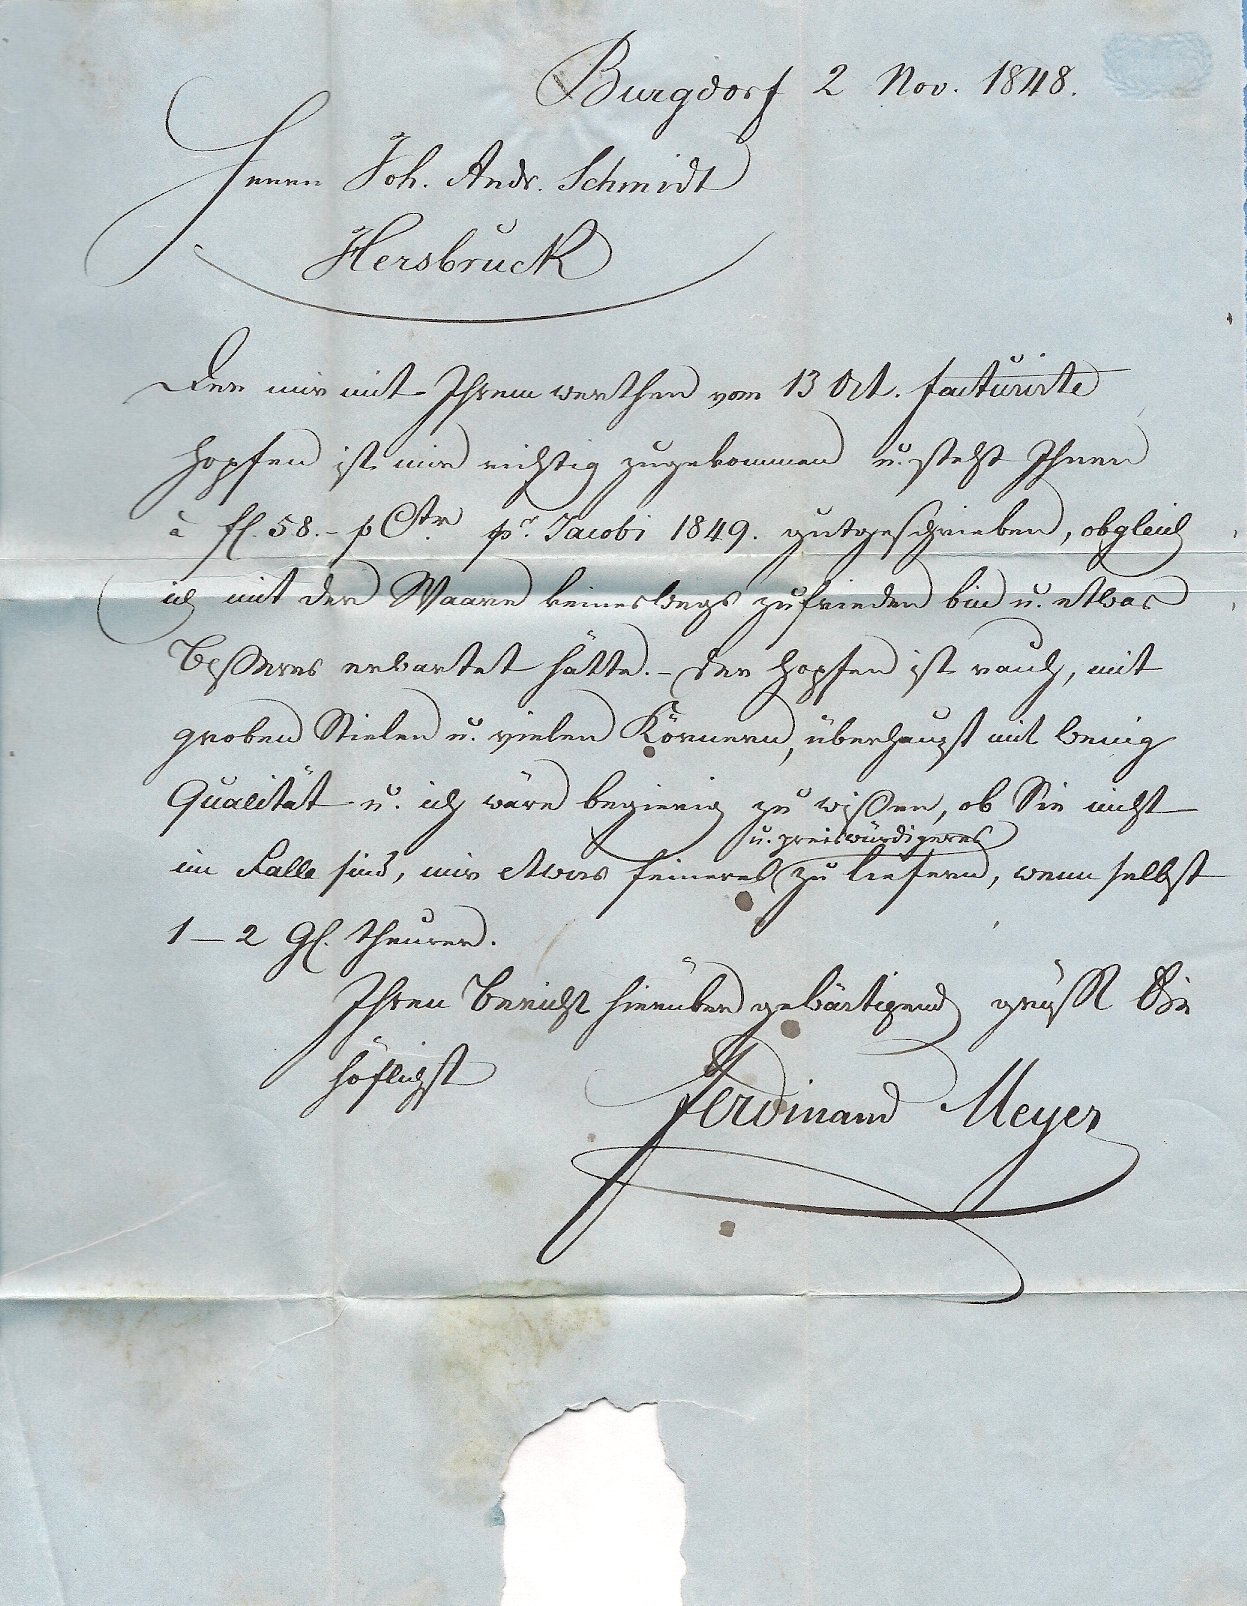 Burgdorf 2 Nov. 1848.
Herrn Joh. Andr. Schmidt
Hersbruck
Der mir mit Ihrem werthen vom 13 Oct. facturirte
Hopfen ist mir richtig zugekommen u. steht Ihnen
à fl. 58.- p Ctr pr. Jacobi 1849. gutgeschrieben, obgleich
ich mit der Waare keineswegs zufrieden bin u. etwas
Besseres erwartet hätte. - Der Hopfen ist rauh, mit
groben Stielen u. vielen Körnern, überhaupt mit wenig
Qualität u. ich wäre begierig zu wissen, ob Sie nicht
u. preiswürdigeres
im Falle sind, mir etwas feineres zu liefern, wenn selbst
1-2 Gl. theurer.
Ihren Bericht hierüber gewärtigend grüsst Sie
höflichst
Ferdinand Meyer